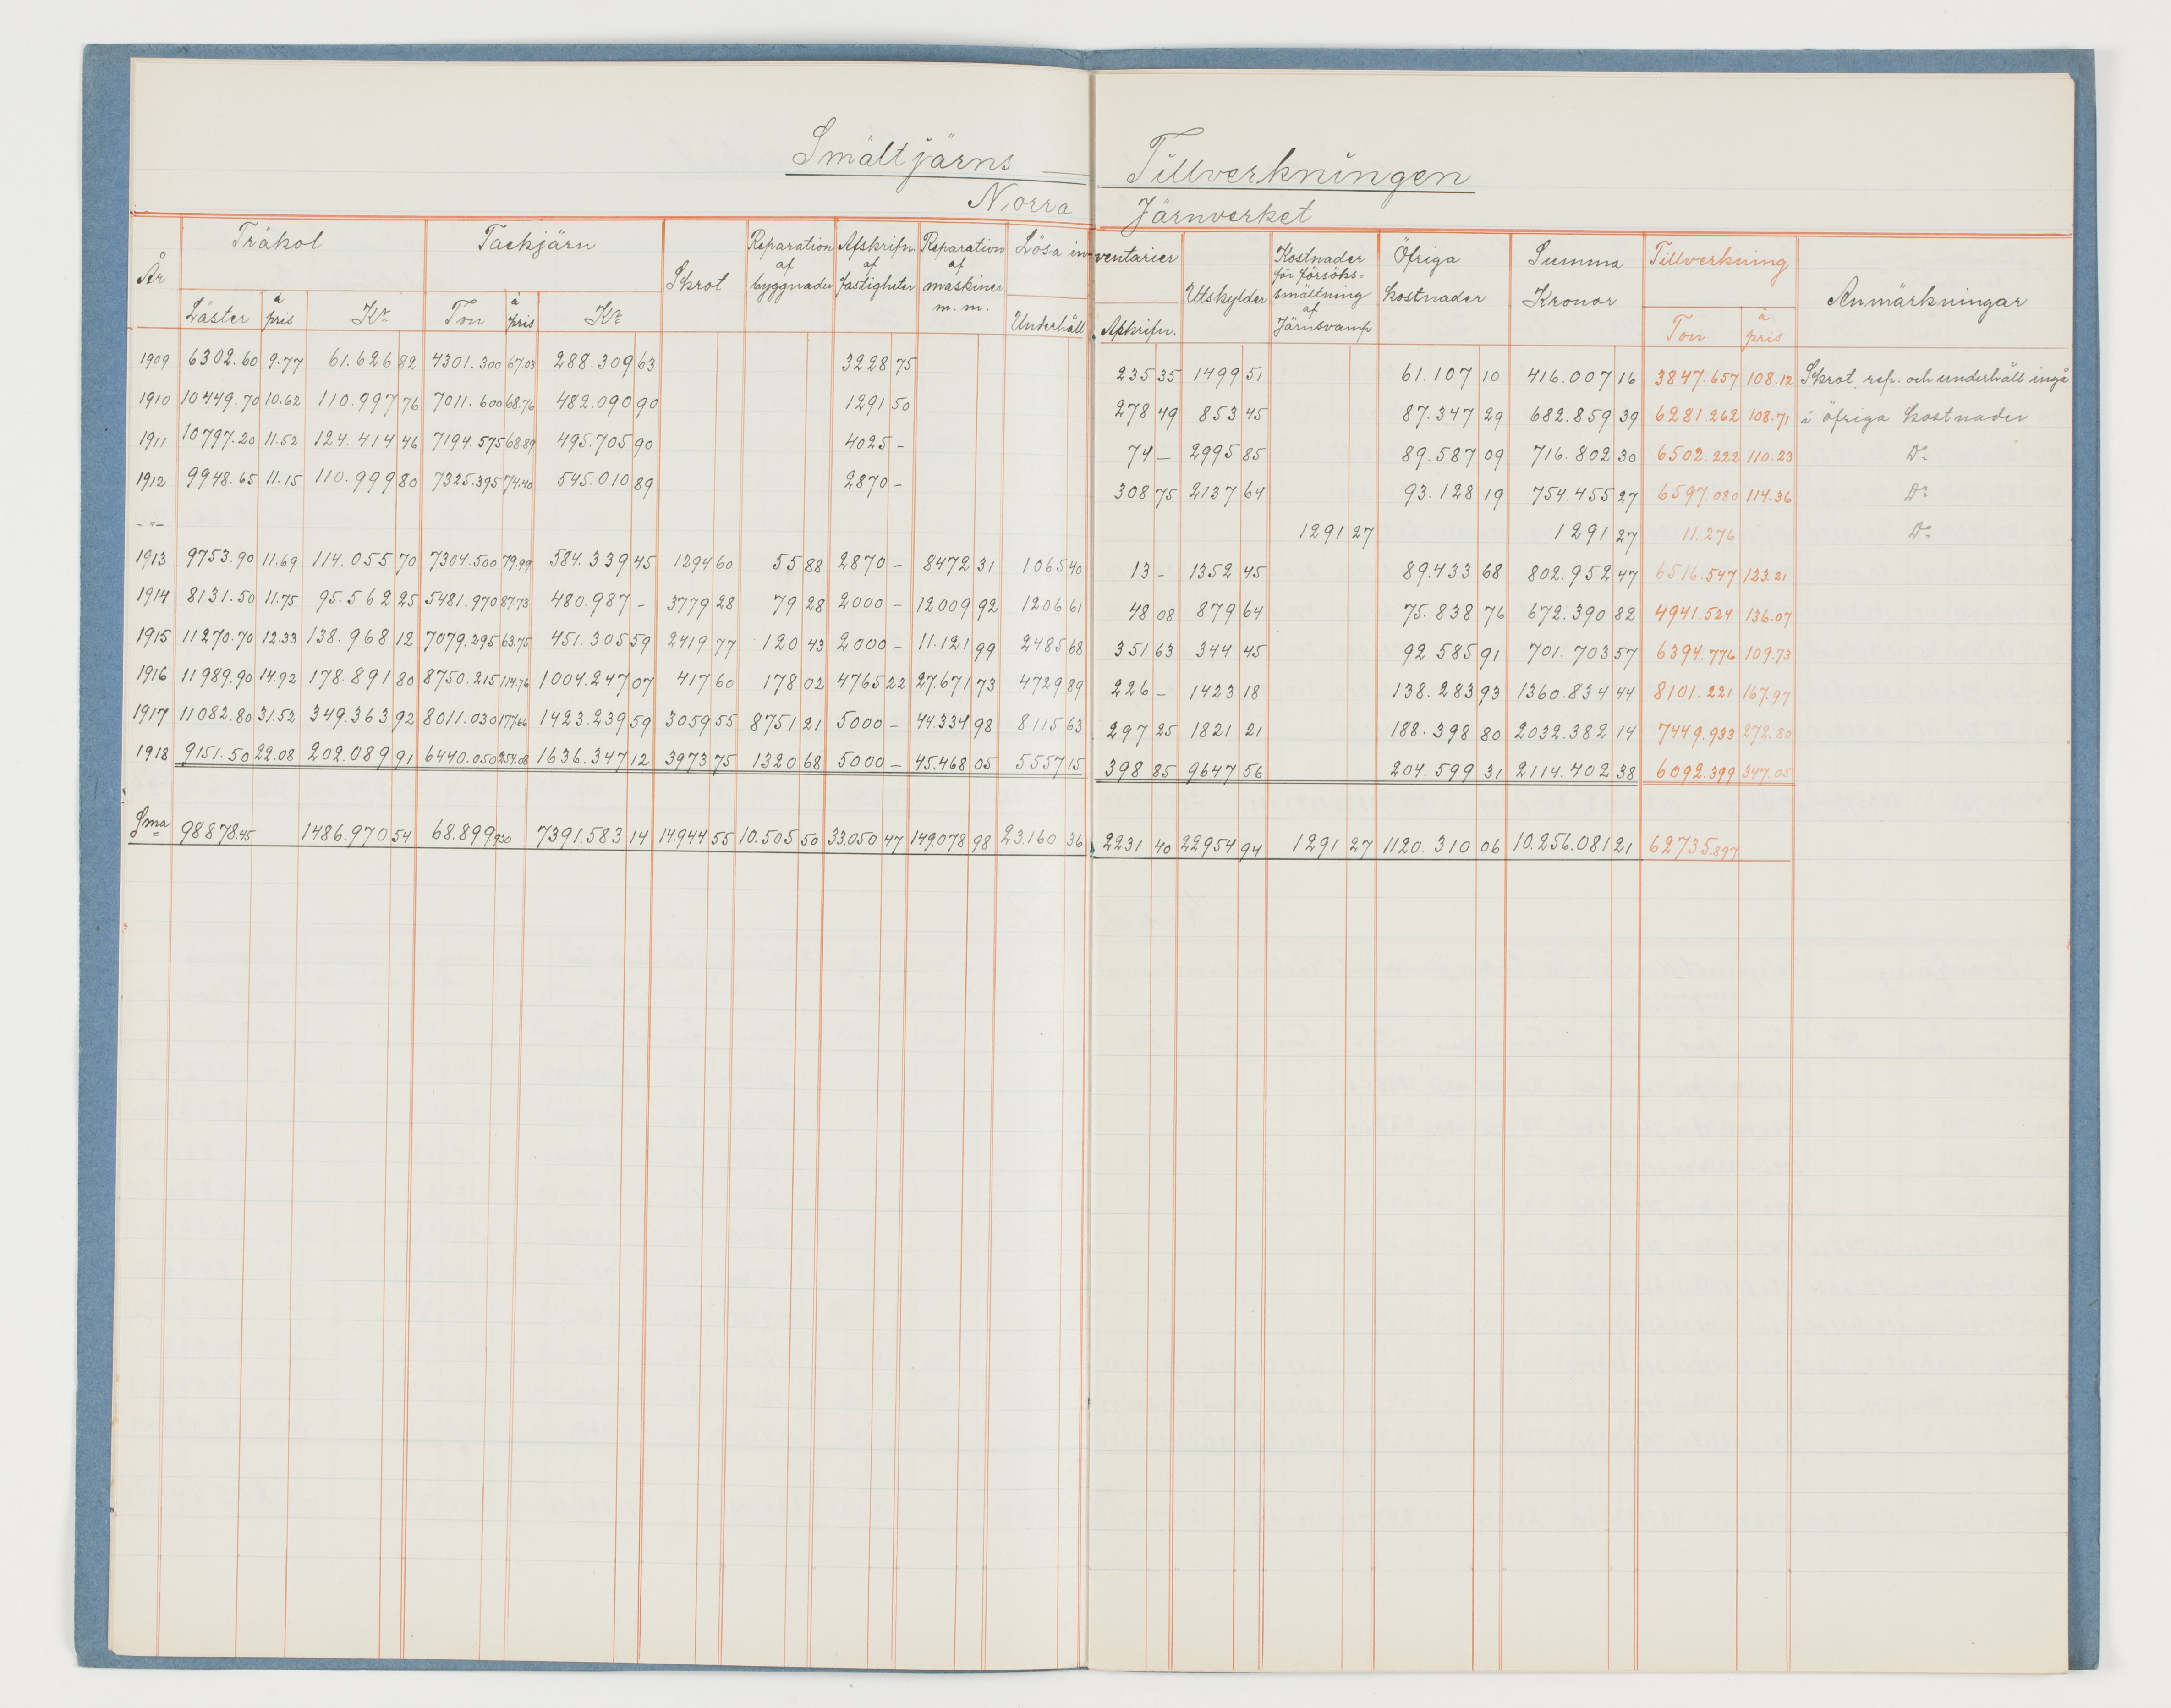 Smältjärns — Tillverkningen
Norra Järnverket
År Träkol Tackjärn Skrot Reparation af byggnader Afskrifn. af fastigheter Reparation af maskiner m.m. Lösa inventarier Utskylder Kostnader för försökssmältning af Järnsvamp Öfriga kostnader Summa Kronor Tillverkning Anmärkningar
Läster à pris Kr Ton à pris Kr Underhåll Afskrifn. Ton à pris
1909 6302.60 9.77 61.626 82 4301.300 67.03 288.309 63 3228 75 235 35 1499 51 61.107 10 416.007 16 3847.657 108.12 Skrot, rep. och underhåll ingå
1910 10449.70 10.62 110.997 76 7011.600 68.76 482.090 90 1291 50 278 49 853 45 87.347 29 682.859 39 6281.262 108.71 i öfriga kostnader
1911 10797.20 11.52 124.414 46 7194.575 68.89 495.705 90 4025 - 74 - 2995 85 89.587 09 716.802 30 6502.222 110.23 Do
1912 9948.65 11.15 110.999 80 7325.395 74.40 545.010 89 2870 - 308 75 2137 64 93.128 19 754.455 27 6597.080 114.36 Do
-"- 1291 27 1291 27 11.276 Do
1913 9753.90 11.69 114.055 70 7304.500 79.99 584.339 45 1294 60 55 88 2870 - 8472 31 1065 40 13 - 1352 45 89.433 68 802.952 47 6516.547 123.21
1914 8131.50 11.75 95.562 25 5481.970 87.73 480.987 - 3779 28 79 28 2000 - 12009 92 1206 61 48 08 879 64 75.838 76 672.390 82 4941.524 136.07
1915 11270.70 12.33 138.968 12 7079.295 63.75 451.305 59 2419 77 120 43 2000 - 11.121 99 2485 68 351 63 344 45 92 585 91 701.703 57 6394.776 109.73
1916 11989.90 14.92 178.891 80 8750.215 114.76 1004.247 07 417 60 178 02 4765 22 27.671 73 4729 89 226 - 1423 18 138.283 93 1360.834 44 8101.221 167.97
1917 11082.80 31.52 349.363 92 8011.030 177.66 1423.239 59 3059 55 8751 21 5000 - 44.334 98 8115 63 297 25 1821 21 188.398 80 2032.382 14 7449.933 272.80
1918 9151.50 22.08 202.089 91 6440.050 254.08 1636.347 12 3973 75 1320 68 5000 - 45.468 05 5557 15 398 85 9647 56 204.599 31 2114.402 38 6092.399 347.05
Sma 98878.45 1486.970 54 68.899 930 7391.583 14 14.944 55 10.505 50 33.050 47 149.078 98 23.160 36 2231 40 22954 94 1291 27 1120.310 06 10.256.081 21 62735.897